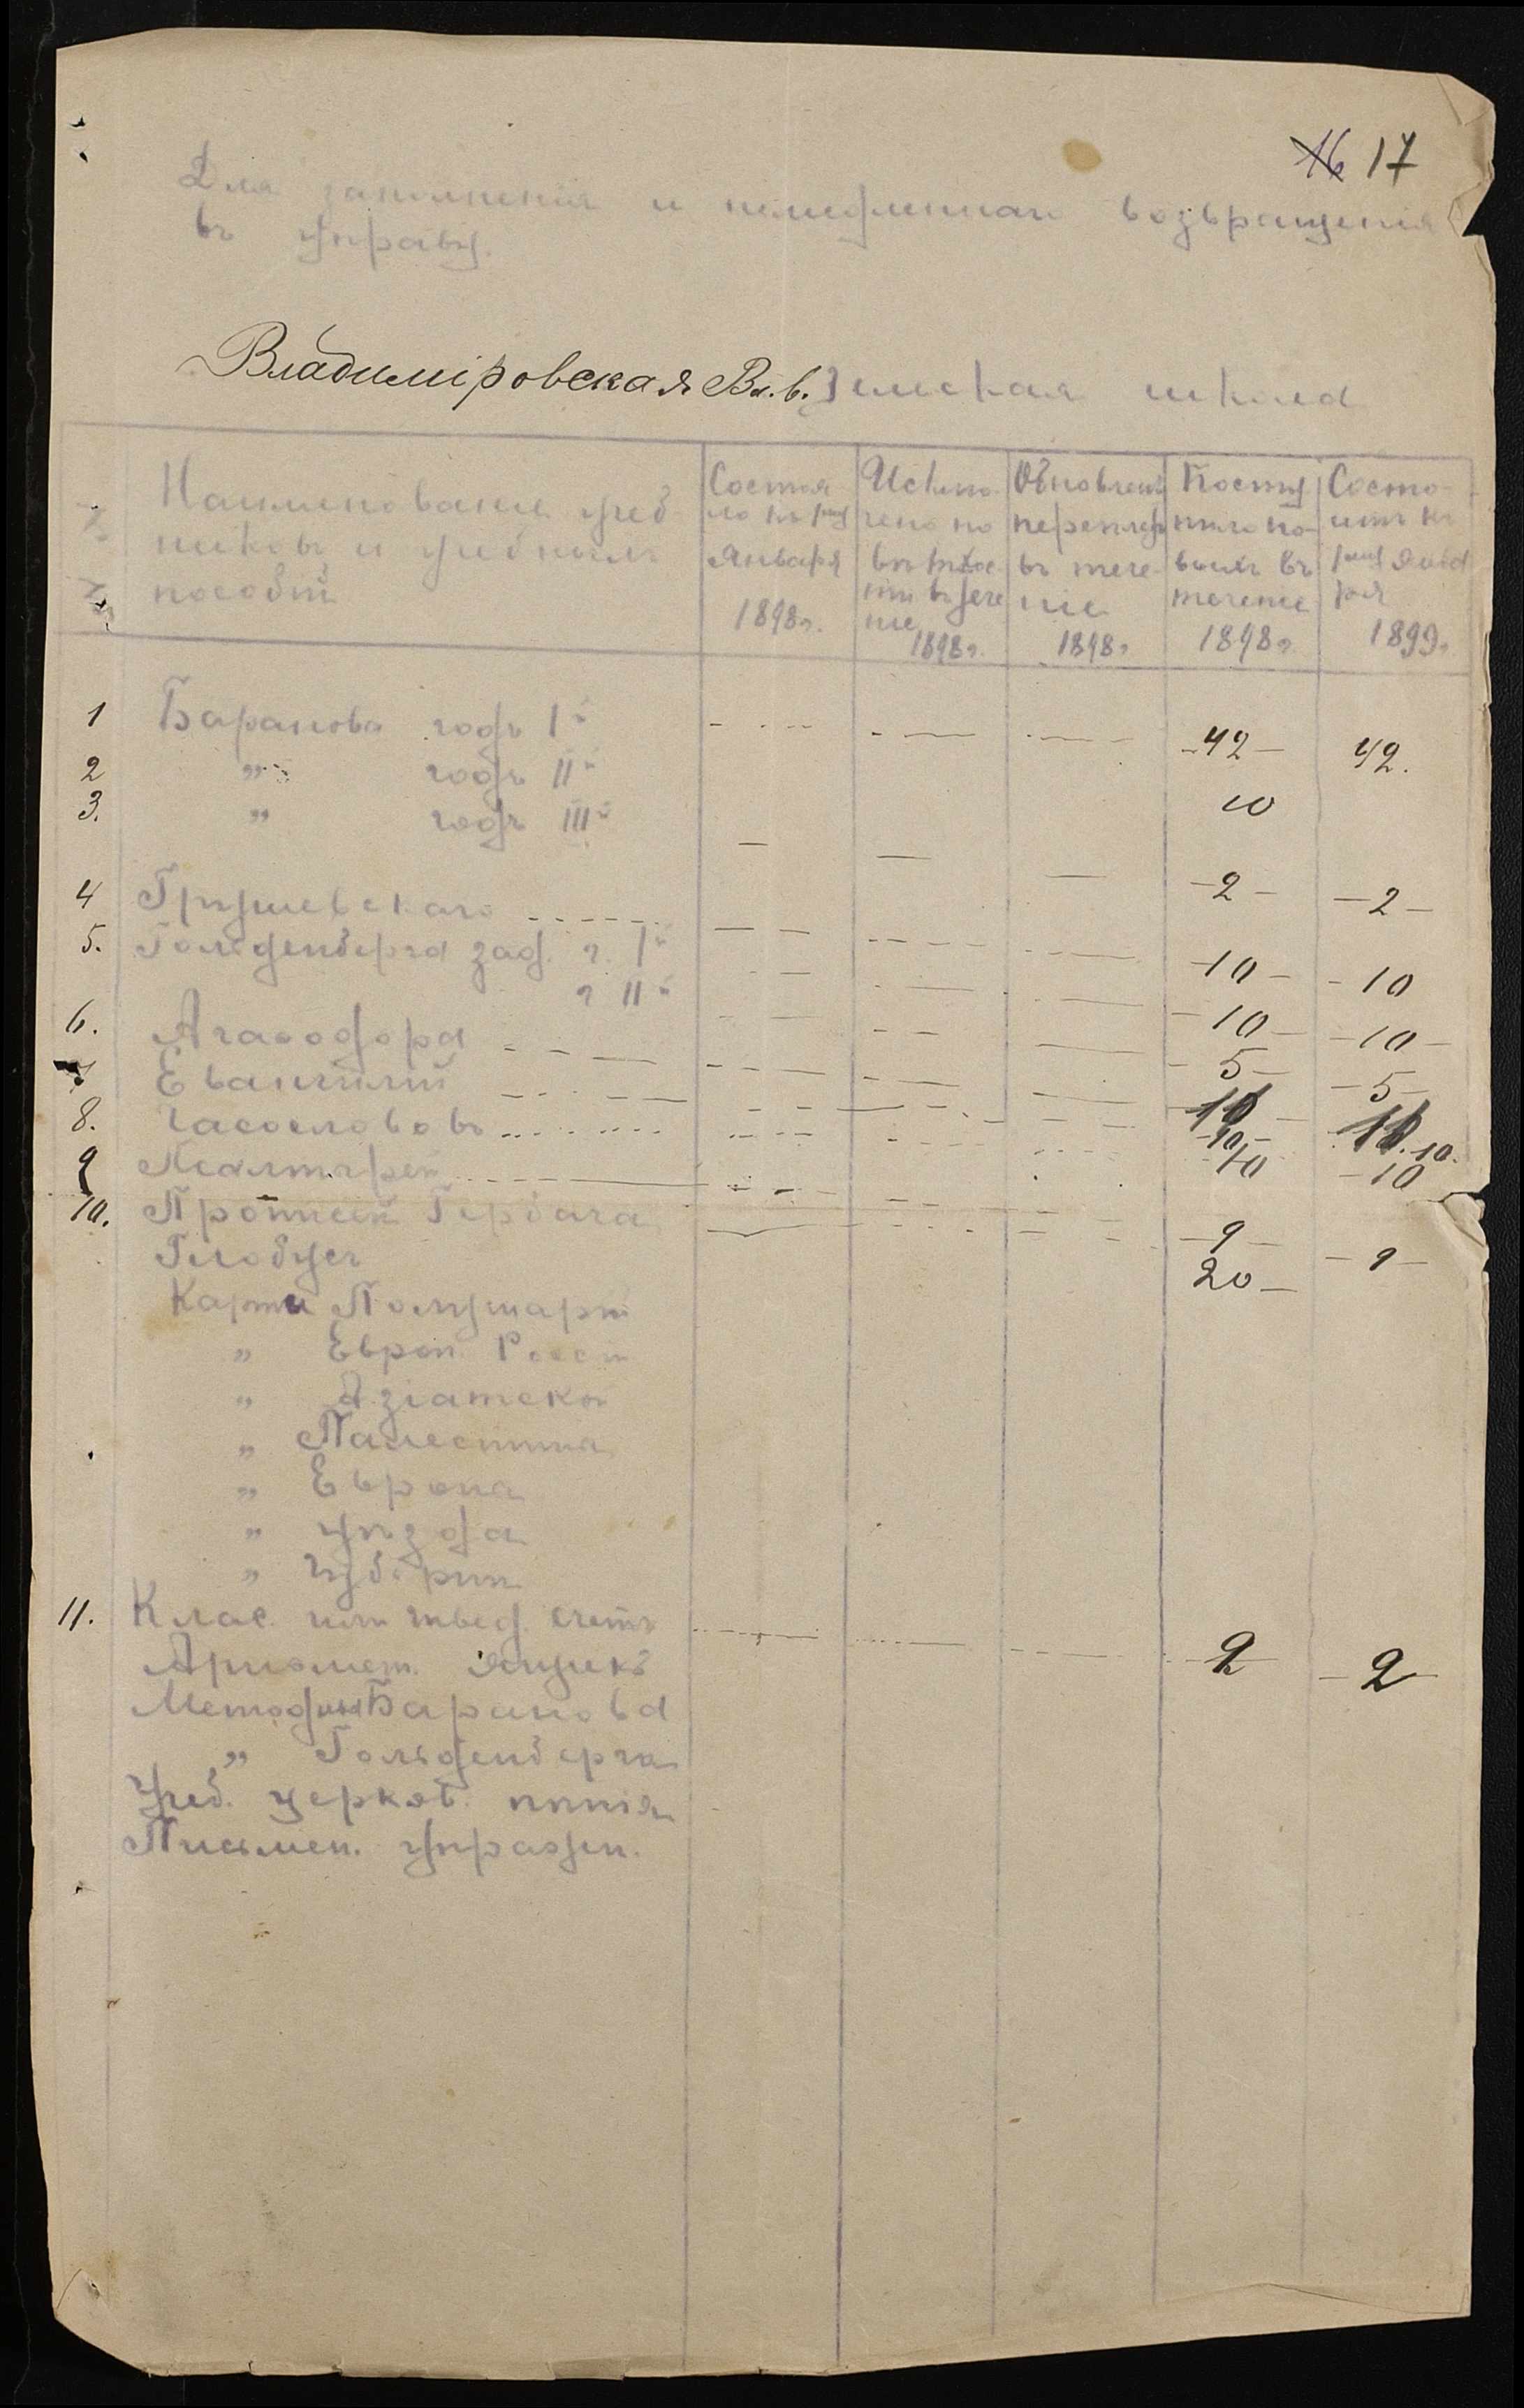 16 17
Для заполненія и немедленнаго возвращенія
въ управу.
Владиміровская Вл. в. Земская школа
№ №
Наименованіе учеб-
никовъ и учебныхъ
пособій
Состоя-
ло къ 1му
Января
1898 г.
Исклю-
чено по
ветхос-
ти въ тече
ніе
1898 г.
Обновлено
переплет
въ тече-
ніе
1898 г.
Посту-
пило но-
выхъ въ
теченіе
1898 г.
Состо-
итъ къ
1му Янва
ря
1899 г.
1 Баранова годъ Iй - - - - 42 - 42.
2 „ годъ IIй 10
3. „ годъ IIIй — — — - 2 - — 2 —
4 Грушевскаго - 10 - - 10
5. Гольденберга зад. г. Iй - 10 - - 10 -
г IIй - 5 - - 5 -
6. Агаѳодора
7 Евангелій
8. Часослововъ - 10 - 10.
9 Псалтирей 10 - 10
10. Прописей Гербача - 9 - - 9 -
Глобусъ 20 -
Карты Полушарій
„ Европ. Россіи
„ Азіатской
„ Палестина
„ Европа
„ уѣзда
„ Губерніи
11. Клас. или швед. счеты 2 - 2
Ариѳмет. ящикъ
Методика Баранова
„ Гольденберга
Учеб. церков. пѣнія
Письмен. упражн.